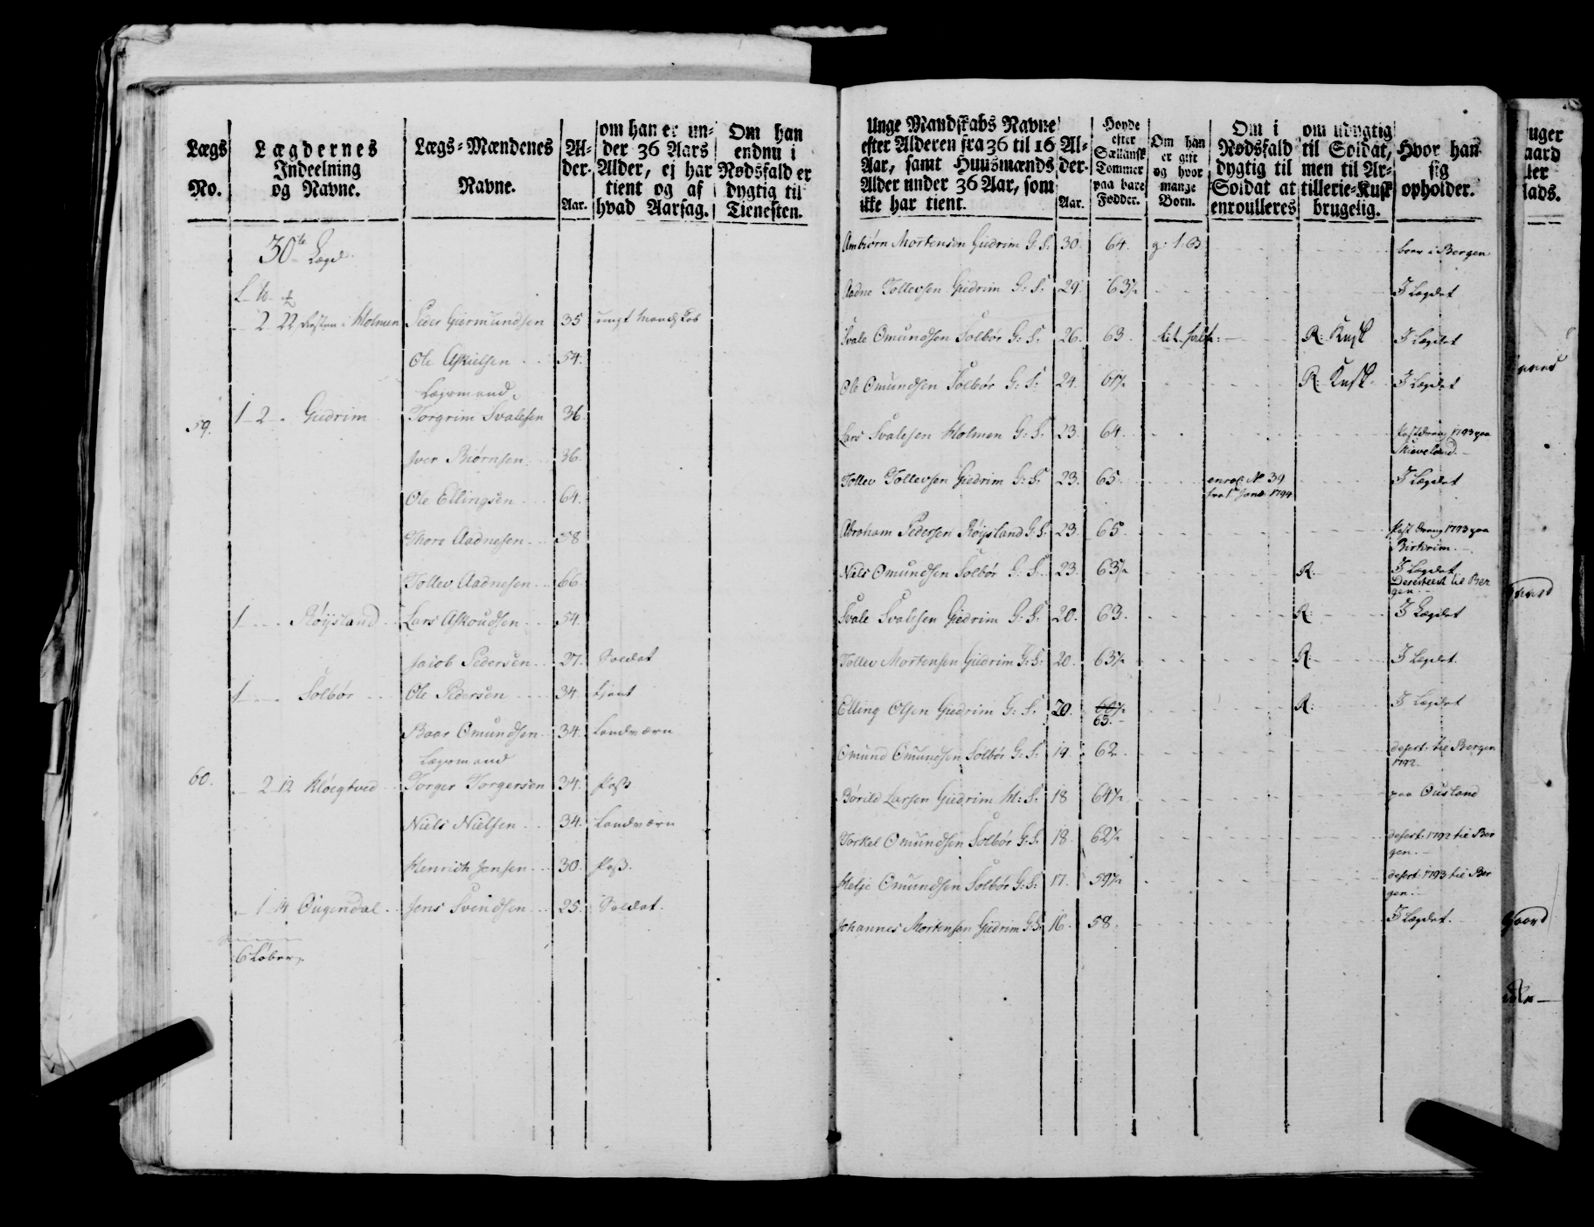 Lægs No.
Lægdernes Indeelning og Navne.
Lægs-Mændenes Navne.
Al-der. Aar.
om han er un-der 36 Aars Alder, ej har tient og af hvad Aarsag.
Om han endnu i Nødsfald er dygtig til Tienesten.
30te Lægd.
2 22 i Holmen Peder Giermundsen 35 ungt Mandskab
Ole Askielsen 54.
Lægsmand
59. 1 2 Gudrim Torgrim Svalesen 36
Iver Biørnsen 36
Ole Ellingsen 64
Thore Aadnesen 58
Tollev Aadnesen 66
1 Røysland Lars Askoudsen 54
Jacob Pedersen 27. Soldat
1 Solbør Ole Pedersen 34 tient
Baar Omundsen 34. Landværn
Lægsmand
60. 2 12 Kløgtved Torger Torgersen 34. Pass
Niels Nielsen 34. Landværn
Henrich Jensen 30. Pass.
1 14 Ougendal Jens Svendsen 25. Soldat.
6 Løber
Unge Mandskabs Navne efter Alderen fra 36 til 16 Aar, samt Huusmænds Alder under 36 Aar, som ikke har tient.
Al-der. Aar.
Høyde efter Siællansk Tommer paa bare Fødder.
Om han er gift og hvor mange Born.
Om i Nødsfald dygtig til Soldat at enroulleres
om udygtig til Soldat, men til Ar-tillerie-Kusk brugelig.
Hvor han sig opholder.
Ambiørn Mortensen Gudrim G. S. 30. 64. g. 1. B boer i Bergen
Aadne Tollevsen Giedrim G. S. 29. 63½ I Lægdet
Svale Omundsen Solbør G. S. 26. 63 R: Kusk I Lægdet
Ole Omundsen Solbør G. S. 24. 61½ R: Kusk I Lægdet
Lars Svalesen Holmen G. S. 23. 64. 1793 paa
Skieveland
Tollev Tollevsen Giedrim G. S. 23. 65. enrol. No 39 I Lægdet
fra 1te Janr 1794
Abraham Pedersen Røysland G. S. 23. 65. 1793 paa
Birkrim
Niels Omundsen Solbør G. S. 23. 63½ R. I Lægdet
Deserteert til Ber
gen
Svale Svalesen Giedrim G. S. 20. 63. R: I Lægdet
Tollev Mortensen Gudrim G. S. 20. 63½ R. I Lægdet
Elling Olsen Gudrim G. S. 20. R: I Lægdet
65.
Omund Omundsen Solbør G. S. 19 62 desert: til Bergen
1792
Børild Larsen Gudrim H: S. 18 64½ paa Ousland
Torkel Omundsen Solbør G. S. 18. 62½ desert: 1792 til Ber
gen.
Helje Omundsen Solbør G. S. 17. 59½ desert: 1793 til Ber
gen.
Johannes Mortensen Gudrim G. S. 16. 58. I Lægdet.